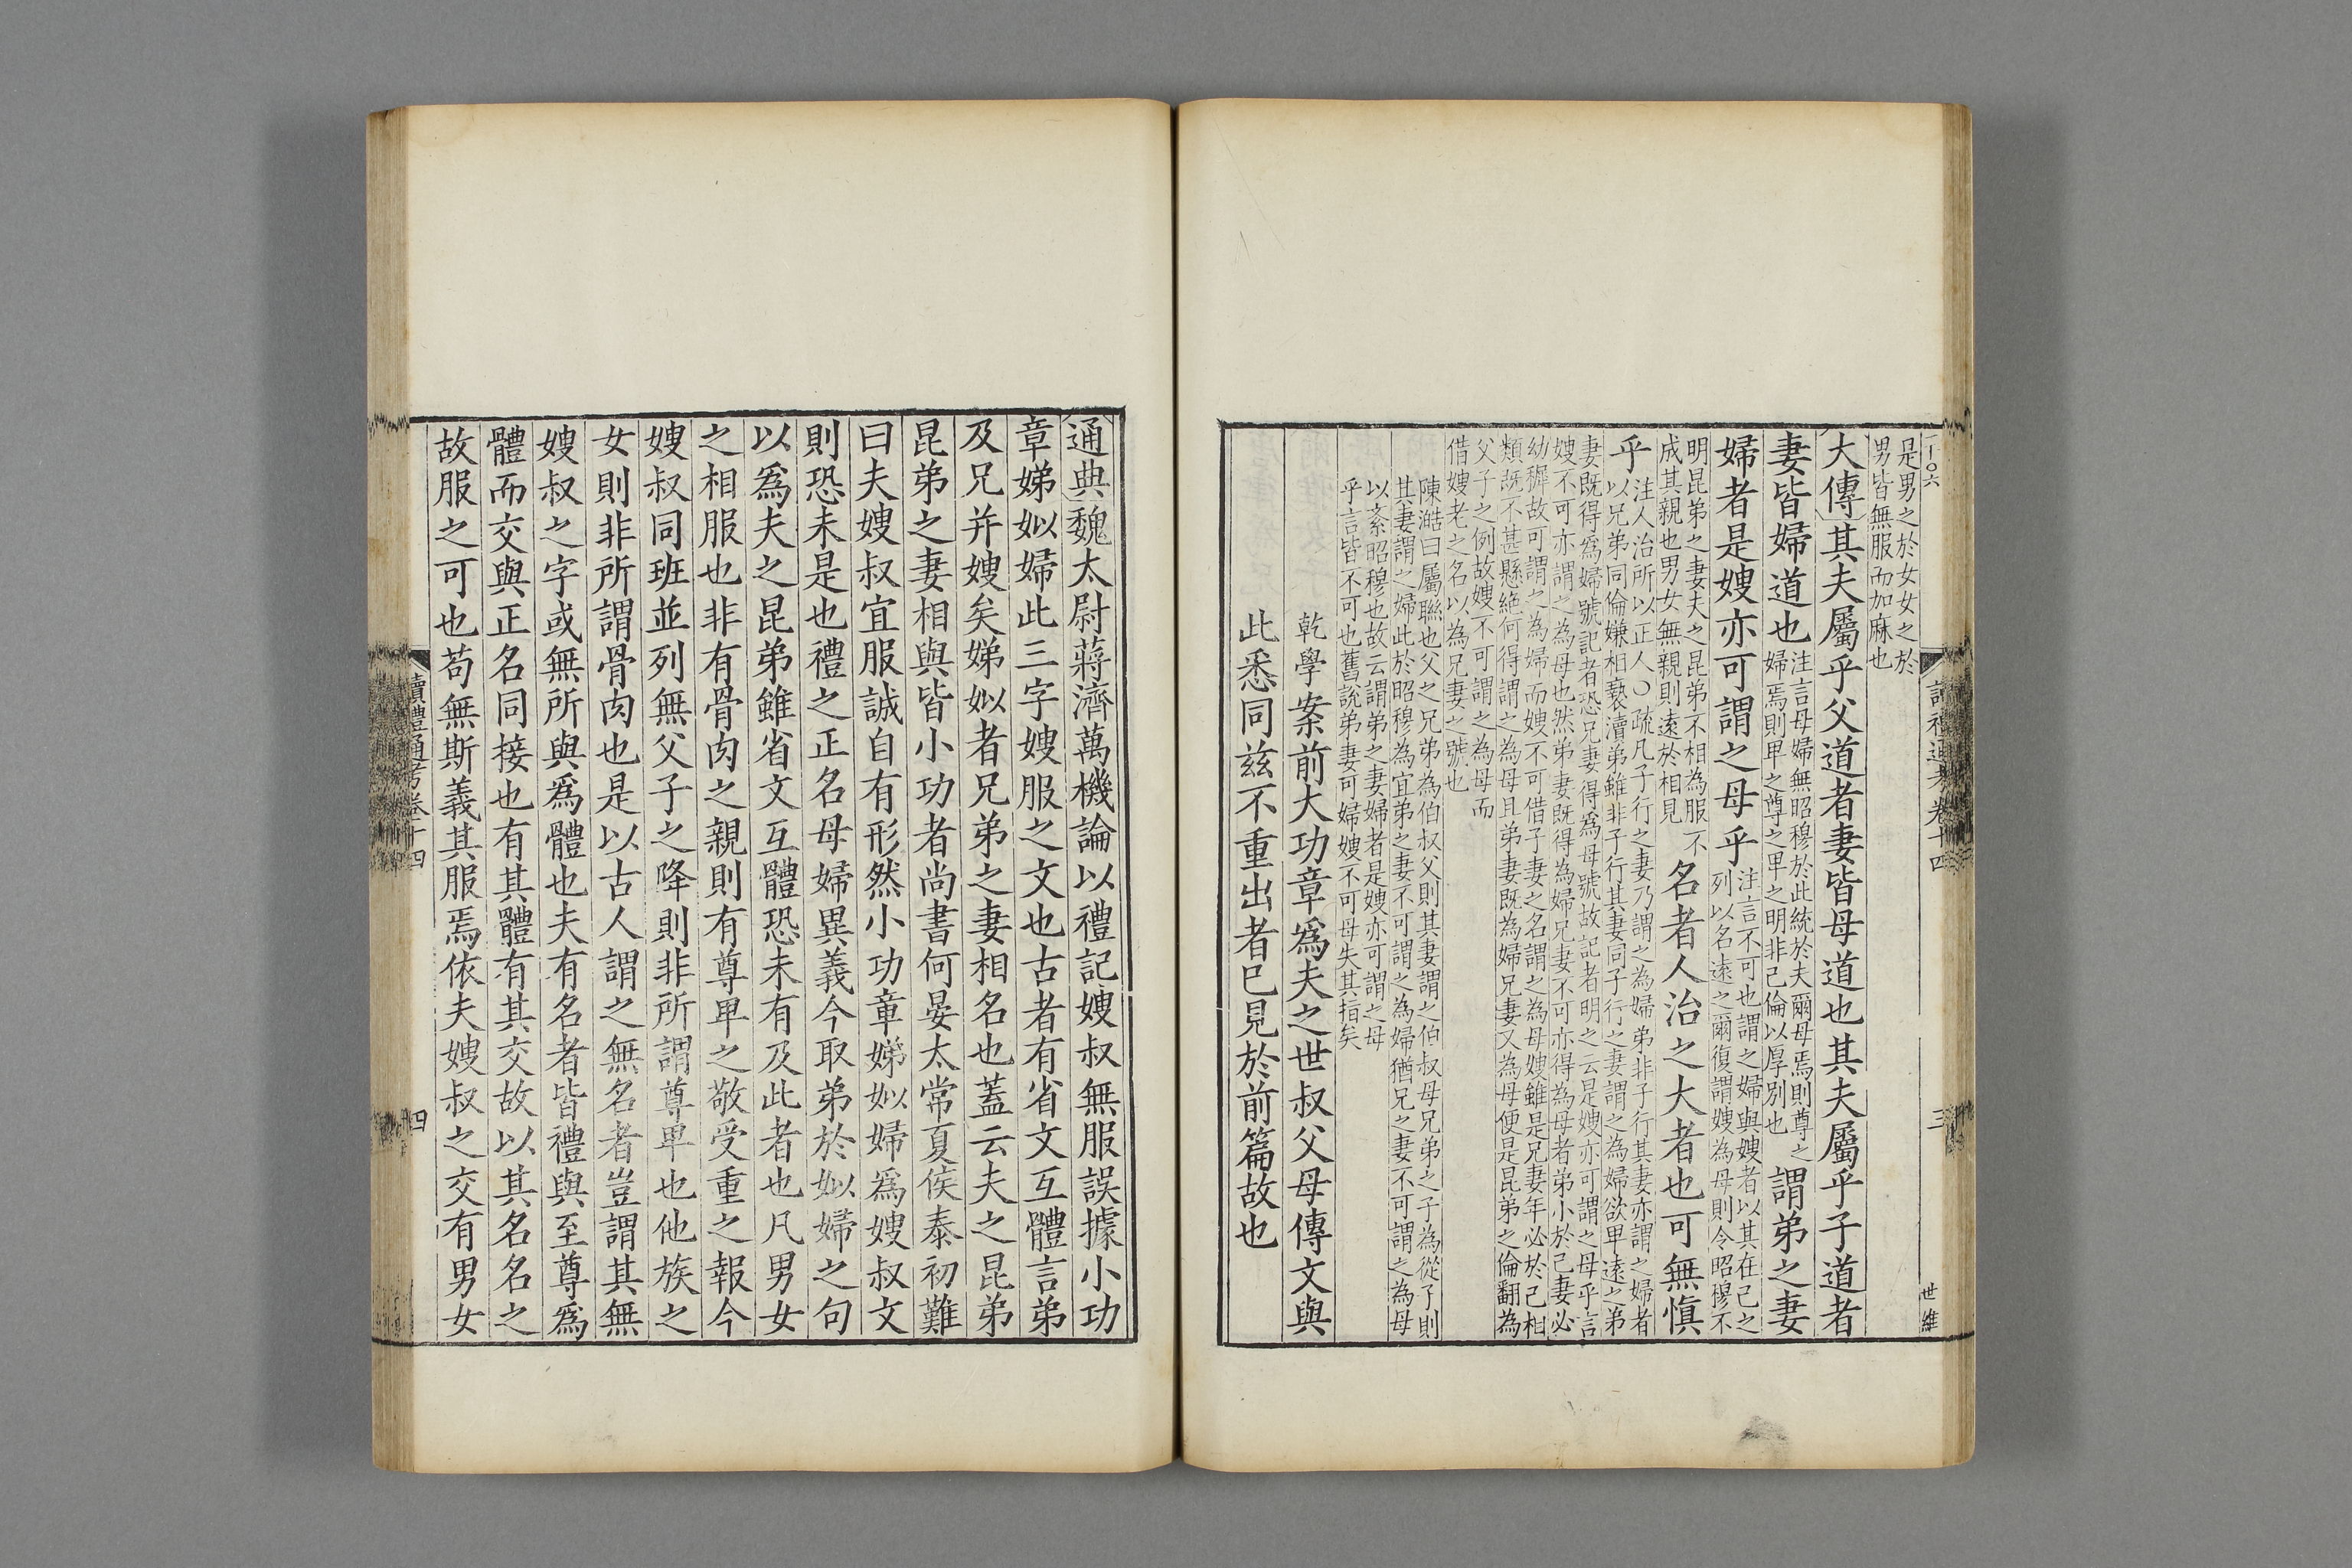 是男之於女女之於
男皆無服而加麻也
大傳其夫屬乎父道者妻皆母道也其夫屬乎子道者
妻皆婦道也
注言母婦無昭穆於此統於夫爾母焉則尊之
婦焉則卑之尊之卑之明非己倫以厚別也
謂弟之妻
婦者是嫂亦可謂之母乎
注言不可也謂之婦與嫂者以其在己之
列以名遠之爾復謂嫂為母則令昭穆不
明昆弟之妻夫之昆弟不相為服不
成其親也男女無親則遠於相見
名者人治之大者也可無慎
乎
注人治所以正人〇疏凡子行之妻乃謂之為婦弟非子行其妻亦謂之婦者
以兄弟同倫嫌相褻瀆弟雖非子行其妻同子行之妻謂之為婦欲卑遠之弟
妻既得為婦號記者恐兄妻得為母號故記者明之云是嫂亦可謂之母乎言
嫂不可亦謂之為母也然弟妻既得為婦兄妻不可亦得為母者弟小於己妻必
幼穉故可謂之為婦而嫂不可借子妻之名謂之為母嫂雖是兄妻年必於己相
類既不甚懸絕何得謂之為母且弟妻既為婦兄妻又為母便是昆弟之倫翻為
父子之例故嫂不可謂之為母而
借嫂老之名以為兄妻之號也
陳澔曰屬聯也父之兄弟為伯叔父則其妻謂之伯叔母兄弟之子為從子則
其妻謂之婦此於昭穆為宜弟之妻不可謂之為婦猶兄之妻不可謂之為母
以紊昭穆也故云謂弟之妻婦者是嫂亦可謂之母
乎言皆不可也舊說弟妻可婦嫂不可母失其指矣
乾學案前大功章為夫之世叔父母傳文與
此悉同茲不重出者已見於前篇故也
讀禮通考卷十四
三
世維
通典魏太尉蔣濟萬機論以禮記嫂叔無服誤據小功
章娣姒婦此三字嫂服之文也古者有省文互體言弟
及兄并嫂矣娣姒者兄弟之妻相名也蓋云夫之昆弟
昆弟之妻相與皆小功者尚書何晏太常夏侯泰初難
曰夫嫂叔宜服誠自有形然小功章娣姒婦為嫂叔文
則恐未是也禮之正名母婦異義今取弟於姒婦之句
以為夫之昆弟雖省文互體恐未有及此者也凡男女
之相服也非有骨肉之親則有尊卑之敬受重之報今
嫂叔同班並列無父子之降則非所謂尊卑也他族之
女則非所謂骨肉也是以古人謂之無名者豈謂其無
嫂叔之字或無所與為體也夫有名者皆禮與至尊為
體而交與正名同接也有其體有其交故以其名名之
故服之可也苟無斯義其服焉依夫嫂叔之交有男女
讀禮通考卷十四
四